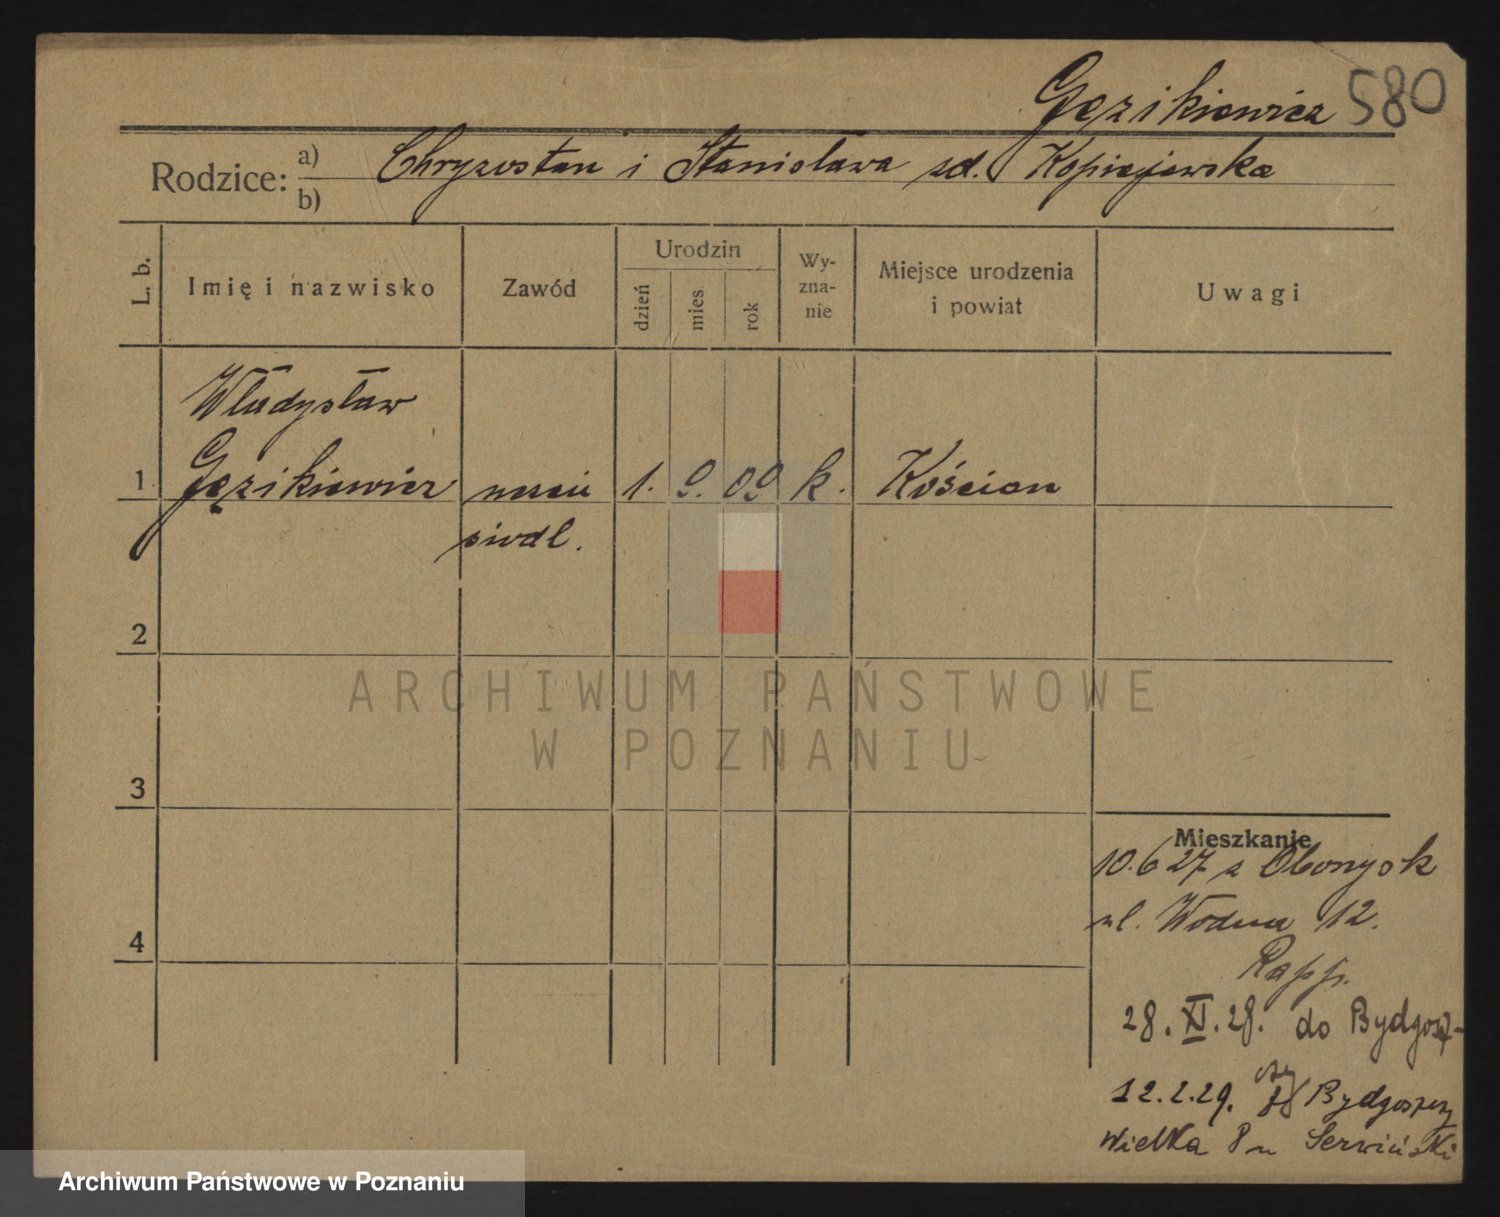 Gęzikiewicz 580
Rodzice: a) Chryzostom i Stanisława zd. Kopiejewska
b)
L. b. Imię i nazwisko Zawód Urodzin dzień mies. rok Wyznanie Miejsce urodzenia i powiat Uwagi
Władysław
1 Gęzikiewicz uczeń 1. 9. 09 k. Kościan
siodl.
2
ARCHIWUM PAŃSTWOWE
W POZNANIU
3
Mieszkanie
10.6 27 z Obornyok
ul. Wodna 12.
4
Rapp.
28. XI. 28. do Bydgosz-
12. 2. 29. Bydgoszczy
Wielka 8 u Serwiński
Archiwum Państwowe w Poznaniu